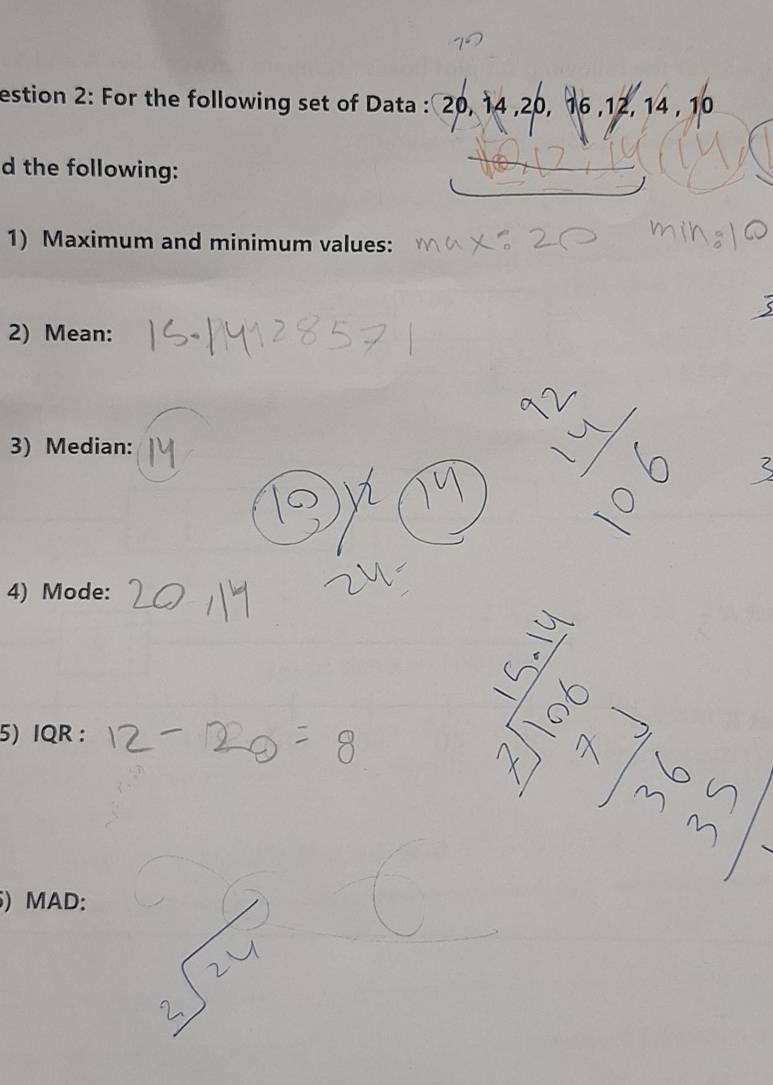 estion 2: For the following set of Data : 20, 14 ,20, 16 ,12, 14 , 10
10, 12, 14, 14,
d the following:
1) Maximum and minimum values: max: 20 min: 10
2) Mean: 15.14128571
92
14
106
3) Median: 14
10 12 14
24
4) Mode: 20, 14
15.14
7 106
7
36
35
5) IQR : 12 - 20 = 8
) MAD:
2 24